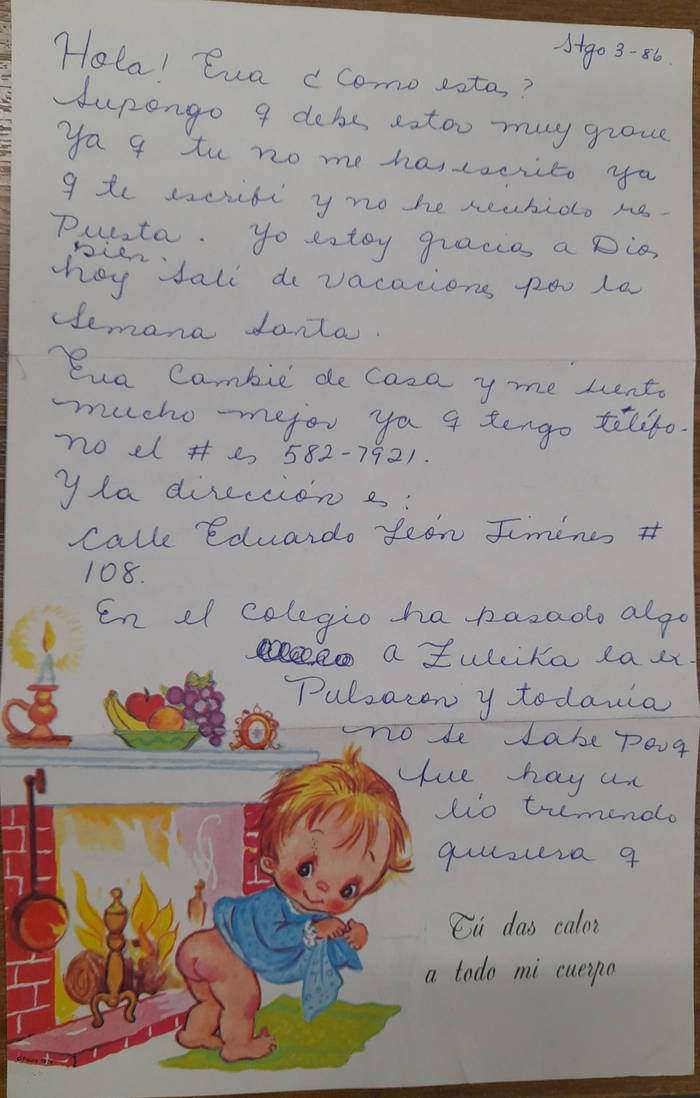 Stgo 3-86.
Hola! Eva ¿Como estas?
Supongo q debes estar muy grave
Ya q tu no me has escrito ya
q te escribí y no he recibido res-
puesta. Yo estoy gracias a Dios
bien.
hoy salí de vacaciones por la
Semana Santa.
Eva Cambié de Casa y me siento
mucho mejor ya q tengo teléfo-
no el # es 582-7921.
Y la dirección es:
Calle Eduardo León Jiménes #
108.
En el Colegio ha pasado algo
a Zuleika la ex-
Pulsaron y todavía
no se sabe Porq
fue hay un
lío tremendo
quisiera q
Tú das calor
a todo mi cuerpo